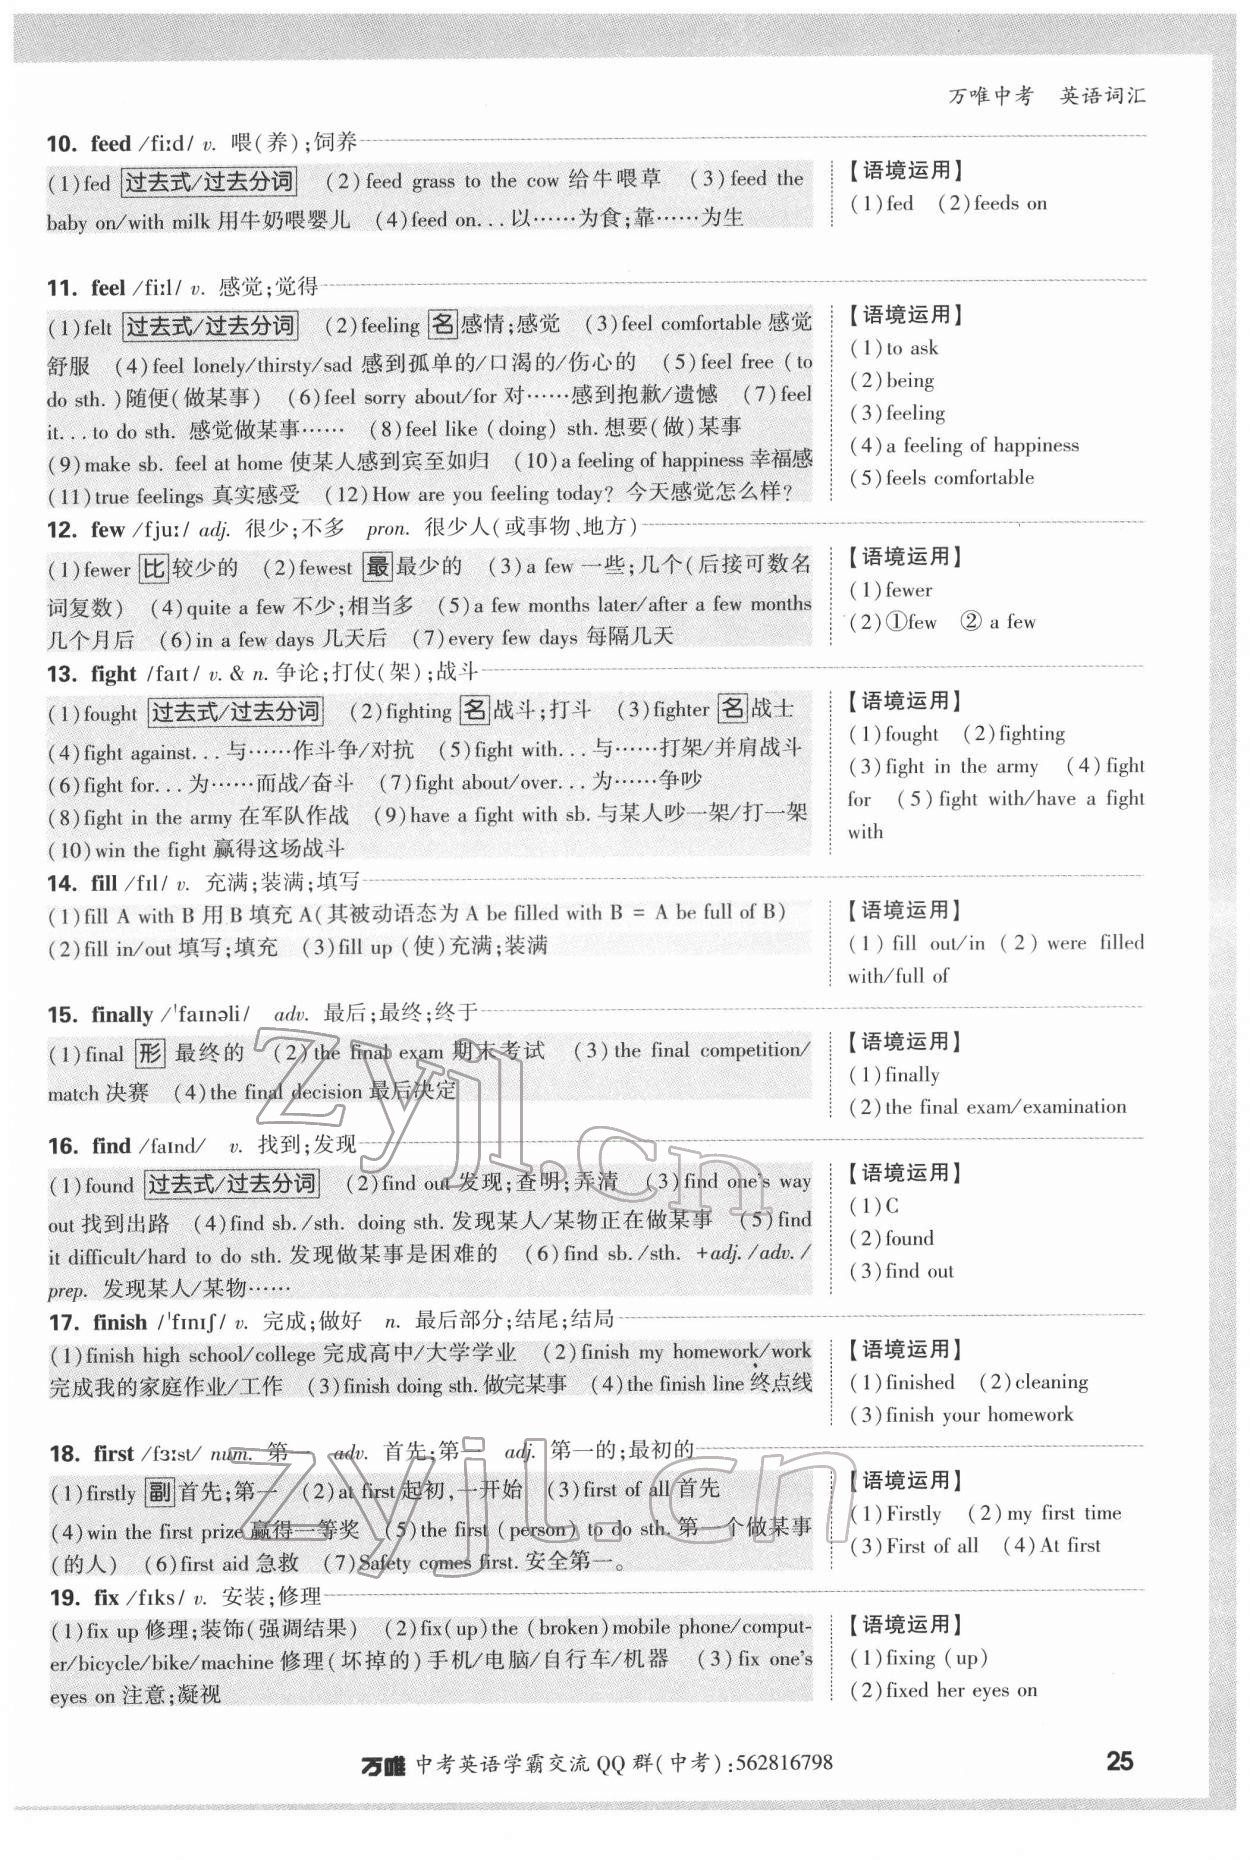 万唯中考 英语词汇
10. feed /fiːd/ v. 喂(养);饲养
(1)fed 过去式/过去分词 (2)feed grass to the cow 给牛喂草 (3)feed the
baby on/with milk 用牛奶喂婴儿 (4)feed on...以……为食;靠……为生
【语境运用】
(1)fed (2)feeds on
11. feel /fiːl/ v. 感觉;觉得
(1)felt 过去式/过去分词 (2)feeling 名 感情;感觉 (3)feel comfortable 感觉
舒服 (4)feel lonely/thirsty/sad 感到孤单的/口渴的/伤心的 (5)feel free (to
do sth.)随便(做某事) (6)feel sorry about/for 对……感到抱歉/遗憾 (7)feel
it...to do sth. 感觉做某事…… (8)feel like (doing) sth.想要(做)某事
(9)make sb. feel at home 使某人感到宾至如归 (10)a feeling of happiness 幸福感
(11)true feelings 真实感受 (12)How are you feeling today? 今天感觉怎么样?
【语境运用】
(1)to ask
(2)being
(3)feeling
(4)a feeling of happiness
(5)feels comfortable
12. few /fjuː/ adj. 很少;不多 pron. 很少人(或事物、地方)
(1)fewer 比 较少的 (2)fewest 最 最少的 (3)a few 一些;几个(后接可数名
词复数) (4)quite a few 不少;相当多 (5)a few months later/after a few months
几个月后 (6)in a few days 几天后 (7)every few days 每隔几天
【语境运用】
(1)fewer
(2)①few ② a few
13. fight /faɪt/ v. & n. 争论;打仗(架);战斗
(1)fought 过去式/过去分词 (2)fighting 名 战斗;打斗 (3)fighter 名 战士
(4)fight against...与……作斗争/对抗 (5)fight with...与……打架/并肩战斗
(6)fight for...为……而战/奋斗 (7)fight about/over...为……争吵
(8)fight in the army 在军队作战 (9)have a fight with sb. 与某人吵一架/打一架
(10)win the fight 赢得这场战斗
【语境运用】
(1)fought (2)fighting
(3)fight in the army (4)fight
for (5)fight with/have a fight
with
14. fill /fɪl/ v. 充满;装满;填写
(1)fill A with B 用 B 填充 A(其被动语态为 A be filled with B = A be full of B)
(2)fill in/out 填写;填充 (3)fill up (使)充满;装满
【语境运用】
(1) fill out/in (2) were filled
with/full of
15. finally /ˈfaɪnəli/ adv. 最后;最终;终于
(1)final 形 最终的 (2)the final exam 期末考试 (3)the final competition/
match 决赛 (4)the final decision 最后决定
【语境运用】
(1)finally
(2)the final exam/examination
16. find /faɪnd/ v. 找到;发现
(1)found 过去式/过去分词 (2)find out 发现;查明;弄清 (3)find one's way
out 找到出路 (4)find sb./sth. doing sth. 发现某人/某物正在做某事 (5)find
it difficult/hard to do sth. 发现做某事是困难的 (6)find sb./sth. +adj./adv./
prep. 发现某人/某物……
【语境运用】
(1)C
(2)found
(3)find out
17. finish /ˈfɪnɪʃ/ v. 完成;做好 n. 最后部分;结尾;结局
(1)finish high school/college 完成高中/大学学业 (2)finish my homework/work
完成我的家庭作业/工作 (3)finish doing sth.做完某事 (4)the finish line 终点线
【语境运用】
(1)finished (2)cleaning
(3)finish your homework
18. first /fɜːst/ num. 第一 adv. 首先;第一 adj. 第一的;最初的
(1)firstly 副 首先;第一 (2)at first 起初,一开始 (3)first of all 首先
(4)win the first prize 赢得一等奖 (5)the first (person) to do sth. 第一个做某事
(的人) (6)first aid 急救 (7)Safety comes first. 安全第一。
【语境运用】
(1)Firstly (2)my first time
(3)First of all (4)At first
19. fix /fɪks/ v. 安装;修理
(1)fix up 修理;装饰(强调结果) (2)fix(up)the (broken)mobile phone/comput-
er/bicycle/bike/machine 修理(坏掉的)手机/电脑/自行车/机器 (3)fix one's
eyes on 注意;凝视
【语境运用】
(1)fixing (up)
(2)fixed her eyes on
zyjl.cn
zyjl.cn
万唯 中考英语学霸交流 QQ 群(中考):562816798
25